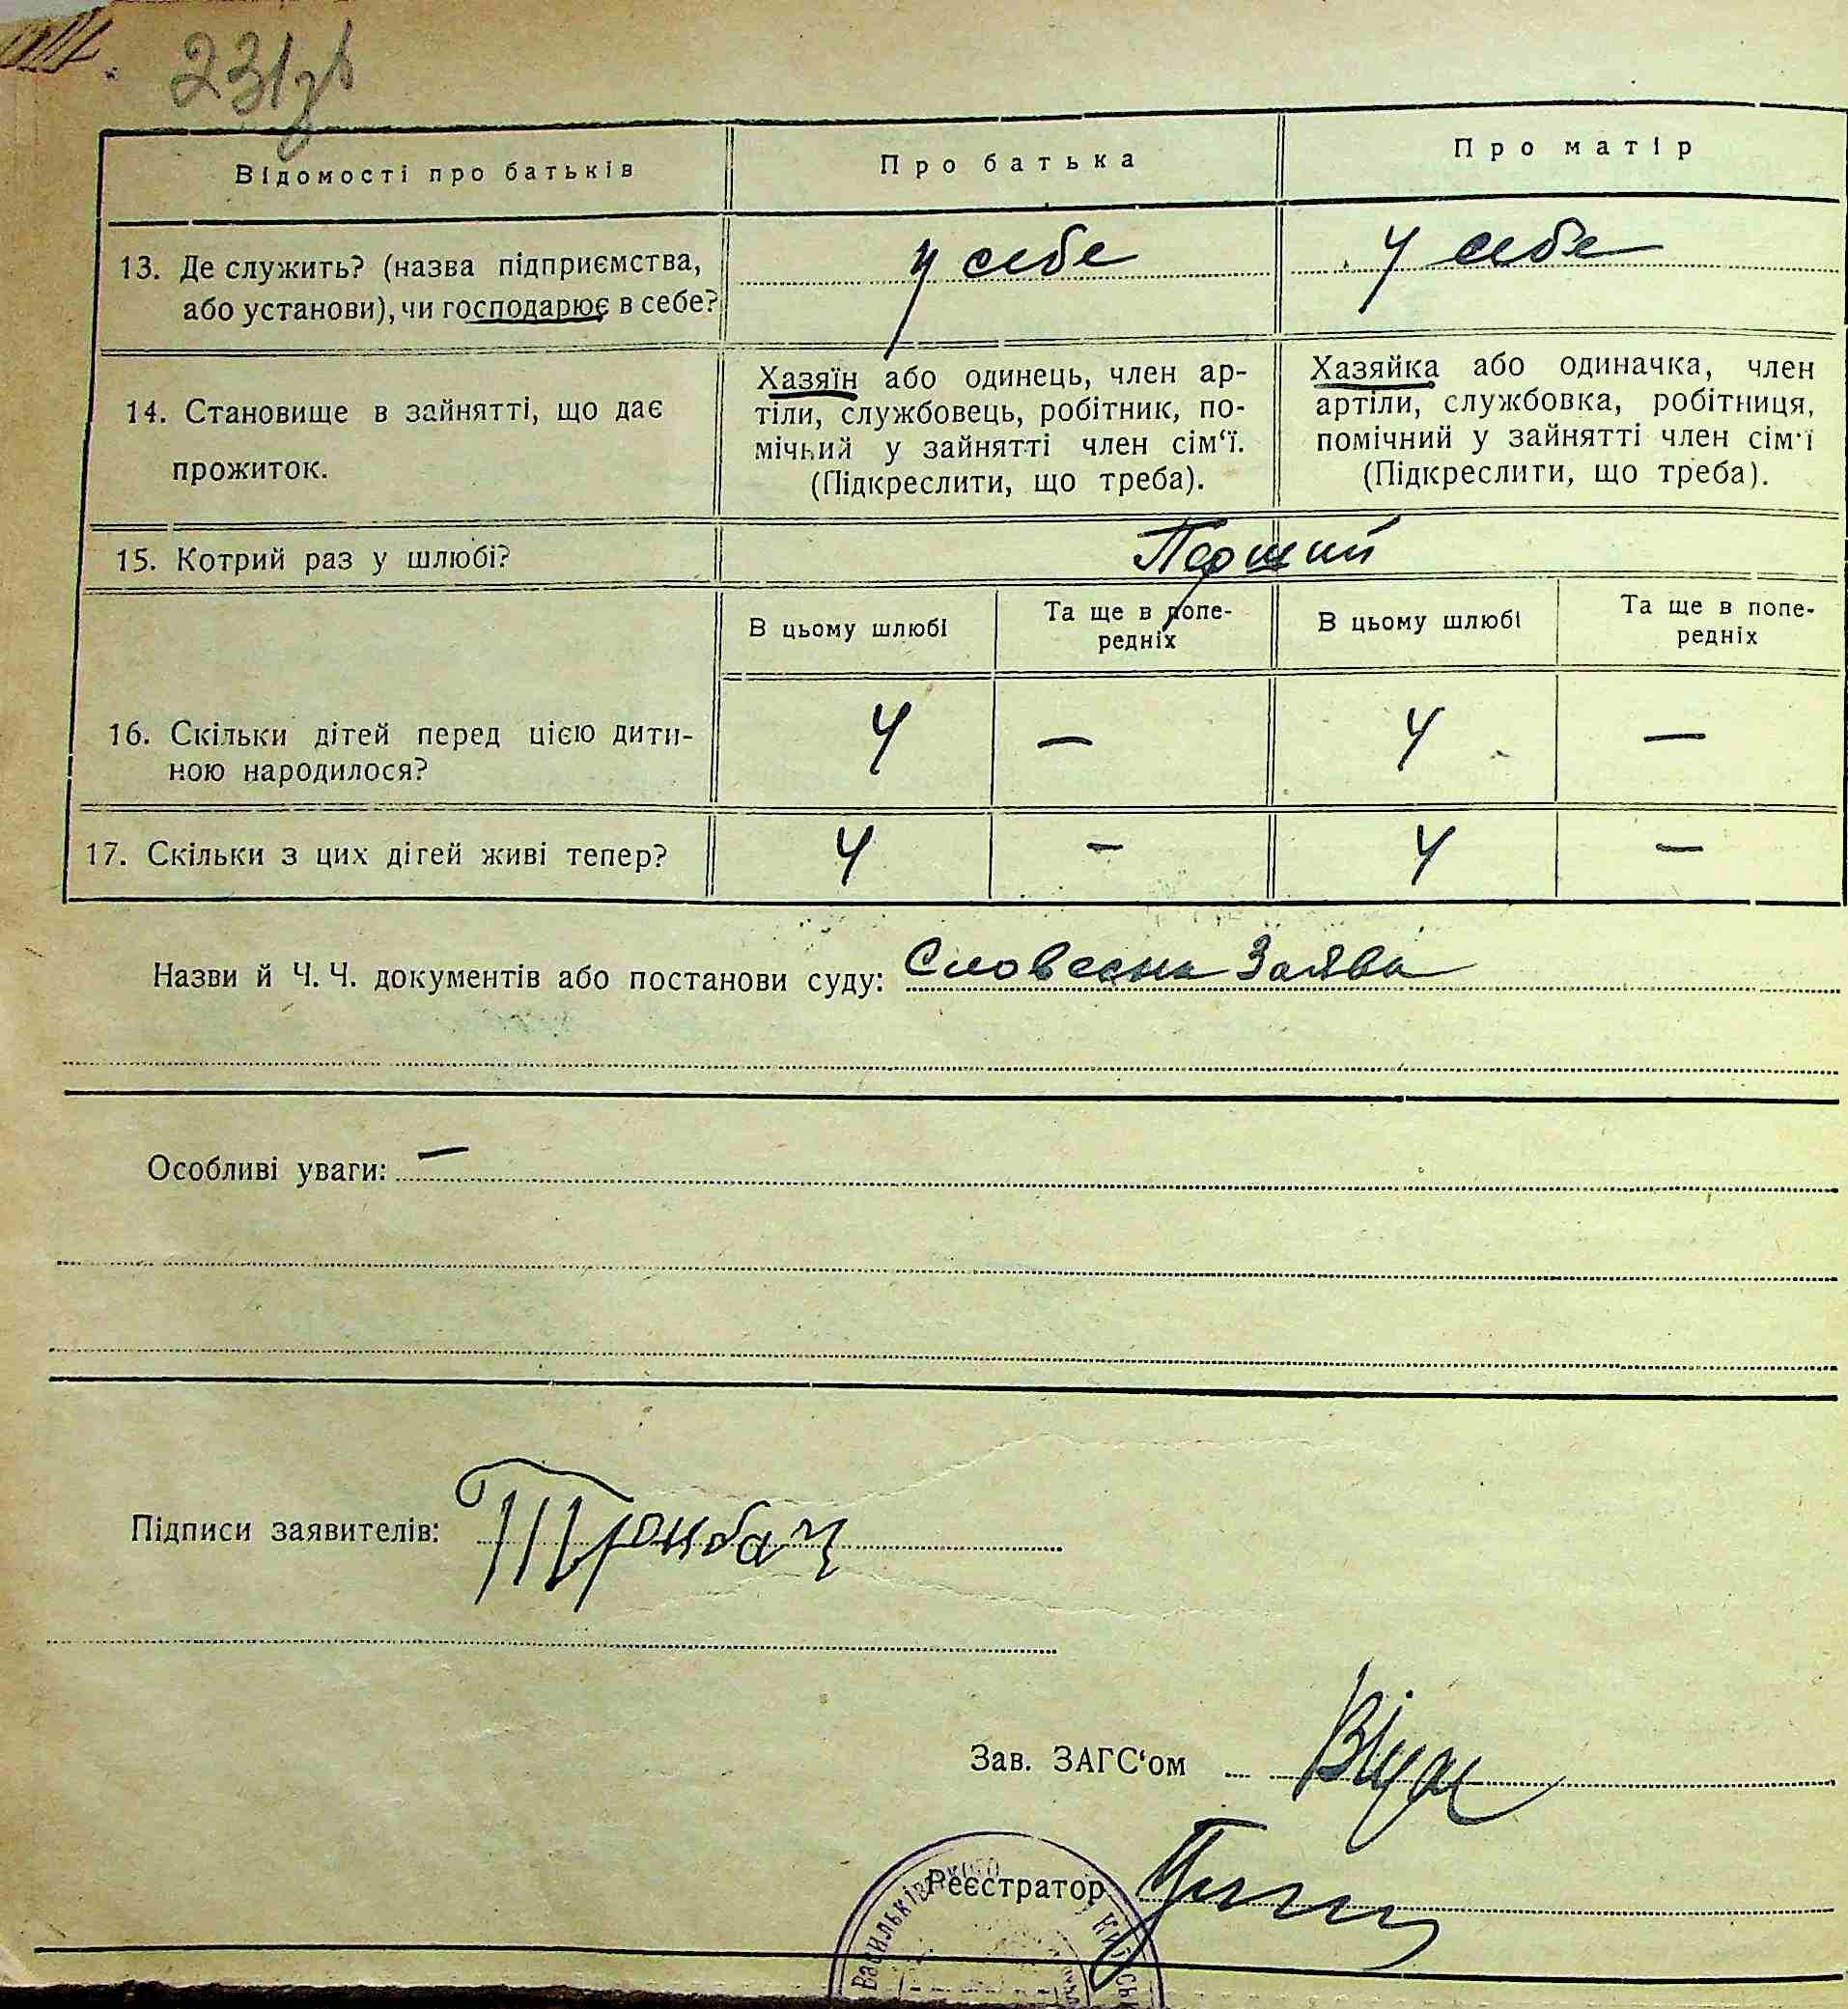 231зв
Відомості про батьків
Про батька
Про матір
13. Де служить? (назва підприємства,
або установи), чи господарює в себе?
у себе
у себе
14. Становище в зайнятті, що дає
прожиток.
Хазяїн або одинець, член ар-
тіли, службовець, робітник, по-
мічний у зайнятті член сім‘ї.
(Підкреслити, що треба).
Хазяйка або одиначка, член
артіли, службовка, робітниця,
помічний у зайнятті член сім‘ї
(Підкреслити, що треба).
15. Котрий раз у шлюбі?
Перший
В цьому шлюбі
Та ще в попе-
редніх
В цьому шлюбі
Та ще в попе-
редніх
16. Скільки дітей перед цією дити-
ною народилося?
4 — 4 —
17. Скільки з цих дітей живі тепер?
4 — 4 —
Назви й Ч. Ч. документів або постанови суду: Словесна Заява
Особливі уваги: —
Підписи заявителів:
Зав. ЗАГС‘ом
Реєстратор
Васильківського